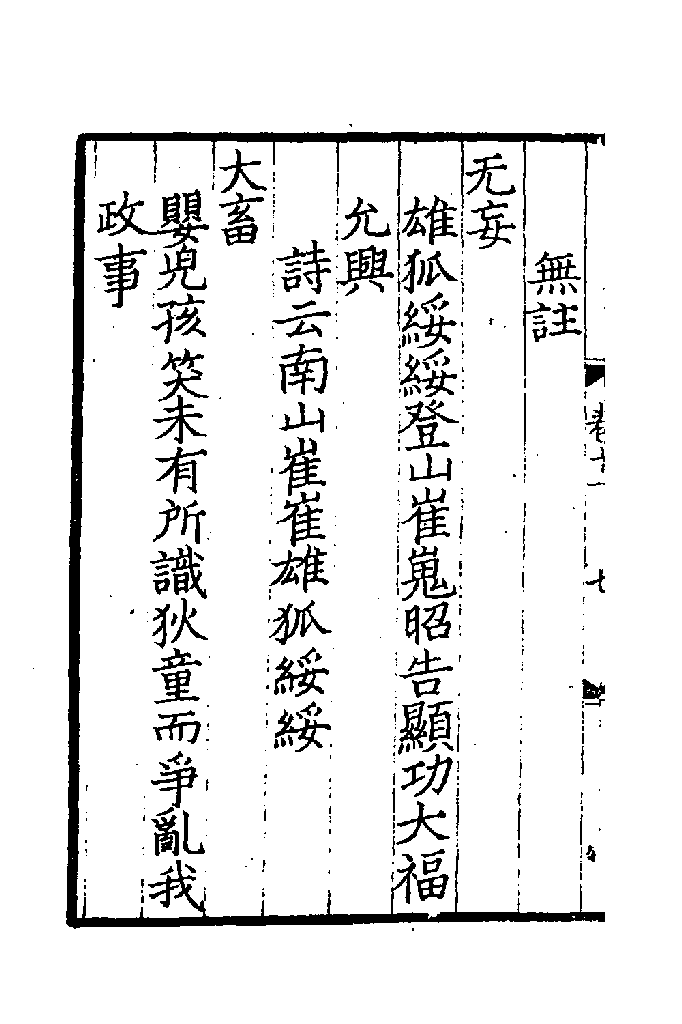 無註
无妄
雄狐綏綏登山崔嵬昭告顯功大福
允興
詩云南山崔崔雄狐綏綏
大畜
嬰兒孩笑未有所識狄童而爭亂我
政事